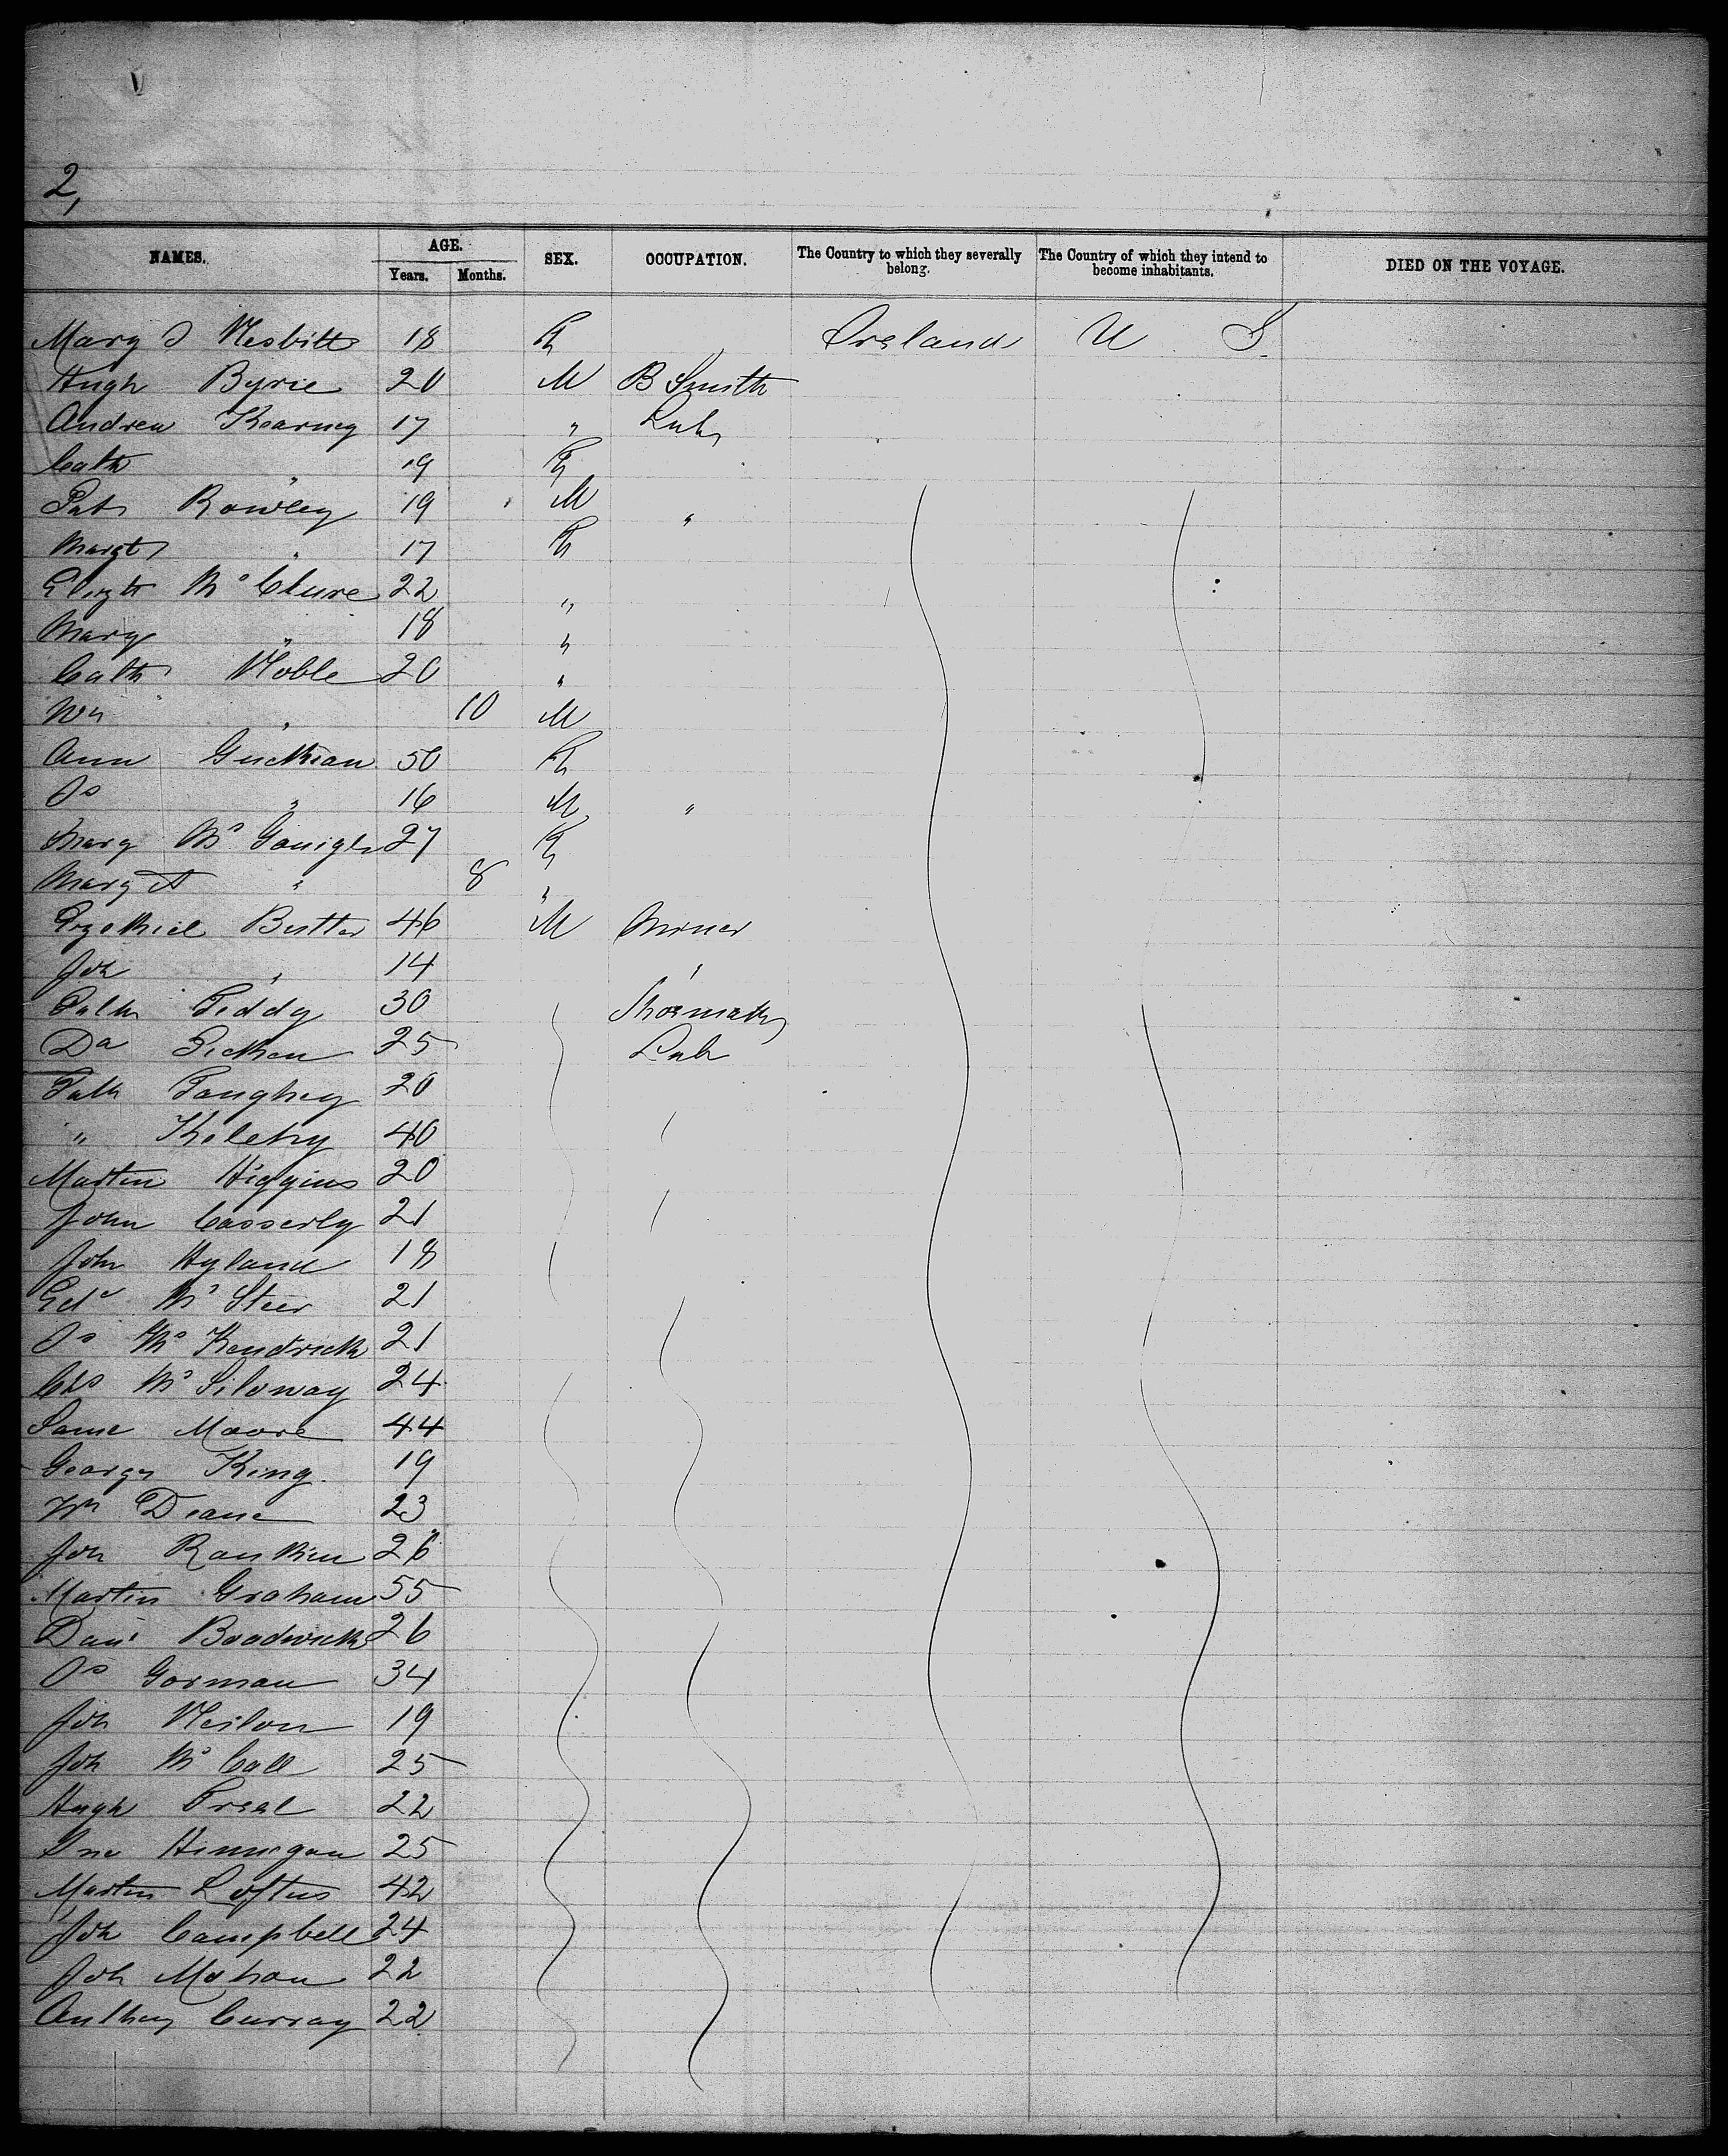 2,
NAMES. AGE. SEX. OCCUPATION. The Country to which they severally belong. The Country of which they intend to become inhabitants. DIED ON THE VOYAGE.
Years. Months.
Mary J Nesbitt 18 F Ireland U S.
Hugh Byrie 20 M B Smith
Andrew Kearney 17 " Lab
Cath " 19 F
Pat Rowley 19 M "
Margt " 17 F
Elizth Mc Clure 22 "
Mary " 18 "
Cath Noble 20 "
Wm " 10 M
Ann Guckian 50 F
Js " 16 M "
Mary Mc Gonigle 27 F
Mary A " 8 "
Ezekiel Butter 46 M Miner
Joh " 14 "
Patk Feddy 30 Shoemak
Da 25 Lab
Patk 20
" 40
Martin Higgins 20
John Casserly 21
John Hyland 18
Edd Mc Steer 21
Js Mc Kendrick 21
Chs Mc Siloway 24
Saml Moore 44
George King 19
Wm Deane 23
Joh Rankin 26
Martin Graham 55
Danl Boadwick 26
Js Gorman 34
Joh Neilon 19
Joh Mc Call 25
Hugh Freal 22
Hinnigan 25
Martin Loftus 42
Joh Campbell 24
Joh Mahon 22
Anthony Curray 22